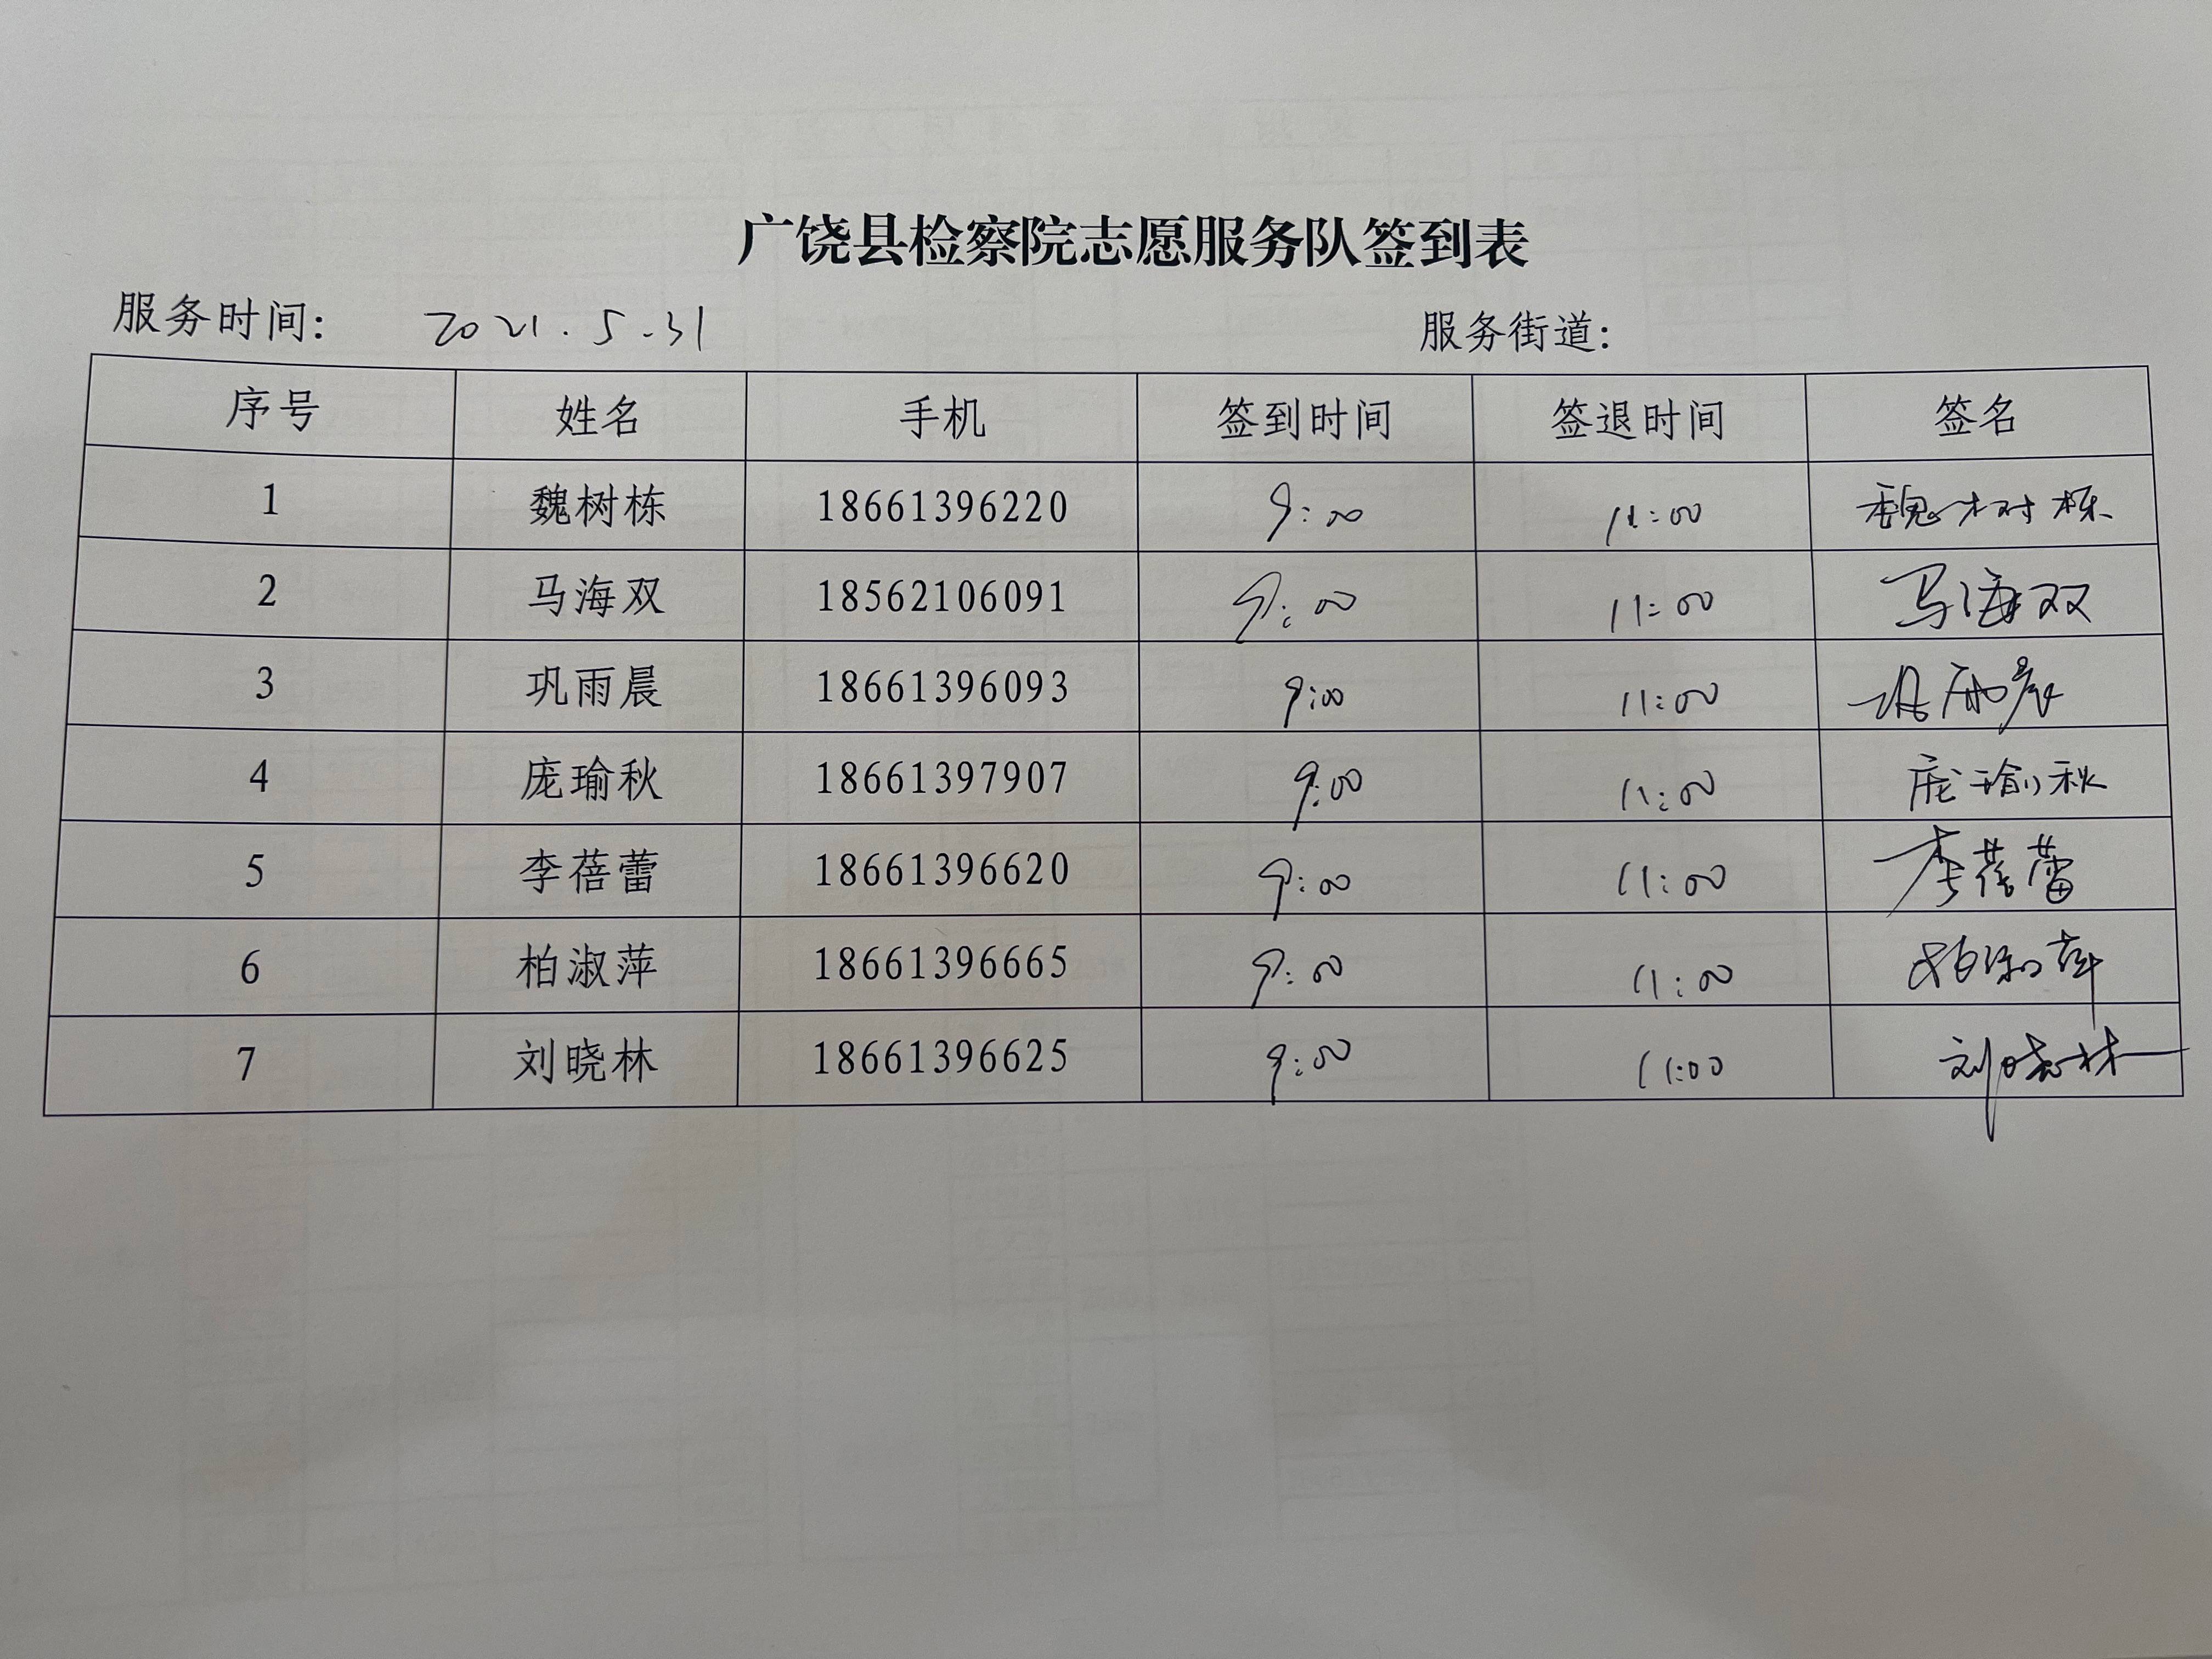 广饶县检察院志愿服务队签到表
服务时间: 2021.5.31 服务街道:
序号 姓名 手机 签到时间 签退时间 签名
1 魏树栋 18661396220 9:00 11:00 魏树栋
2 马海双 18562106091 9:00 11:00 马海双
3 巩雨晨 18661396093 9:00 11:00 巩雨晨
4 庞瑜秋 18661397907 9:00 11:00 庞瑜秋
5 李蓓蕾 18661396620 9:00 11:00 李蓓蕾
6 柏淑萍 18661396665 9:00 11:00 柏淑萍
7 刘晓林 18661396625 9:00 11:00 刘晓林